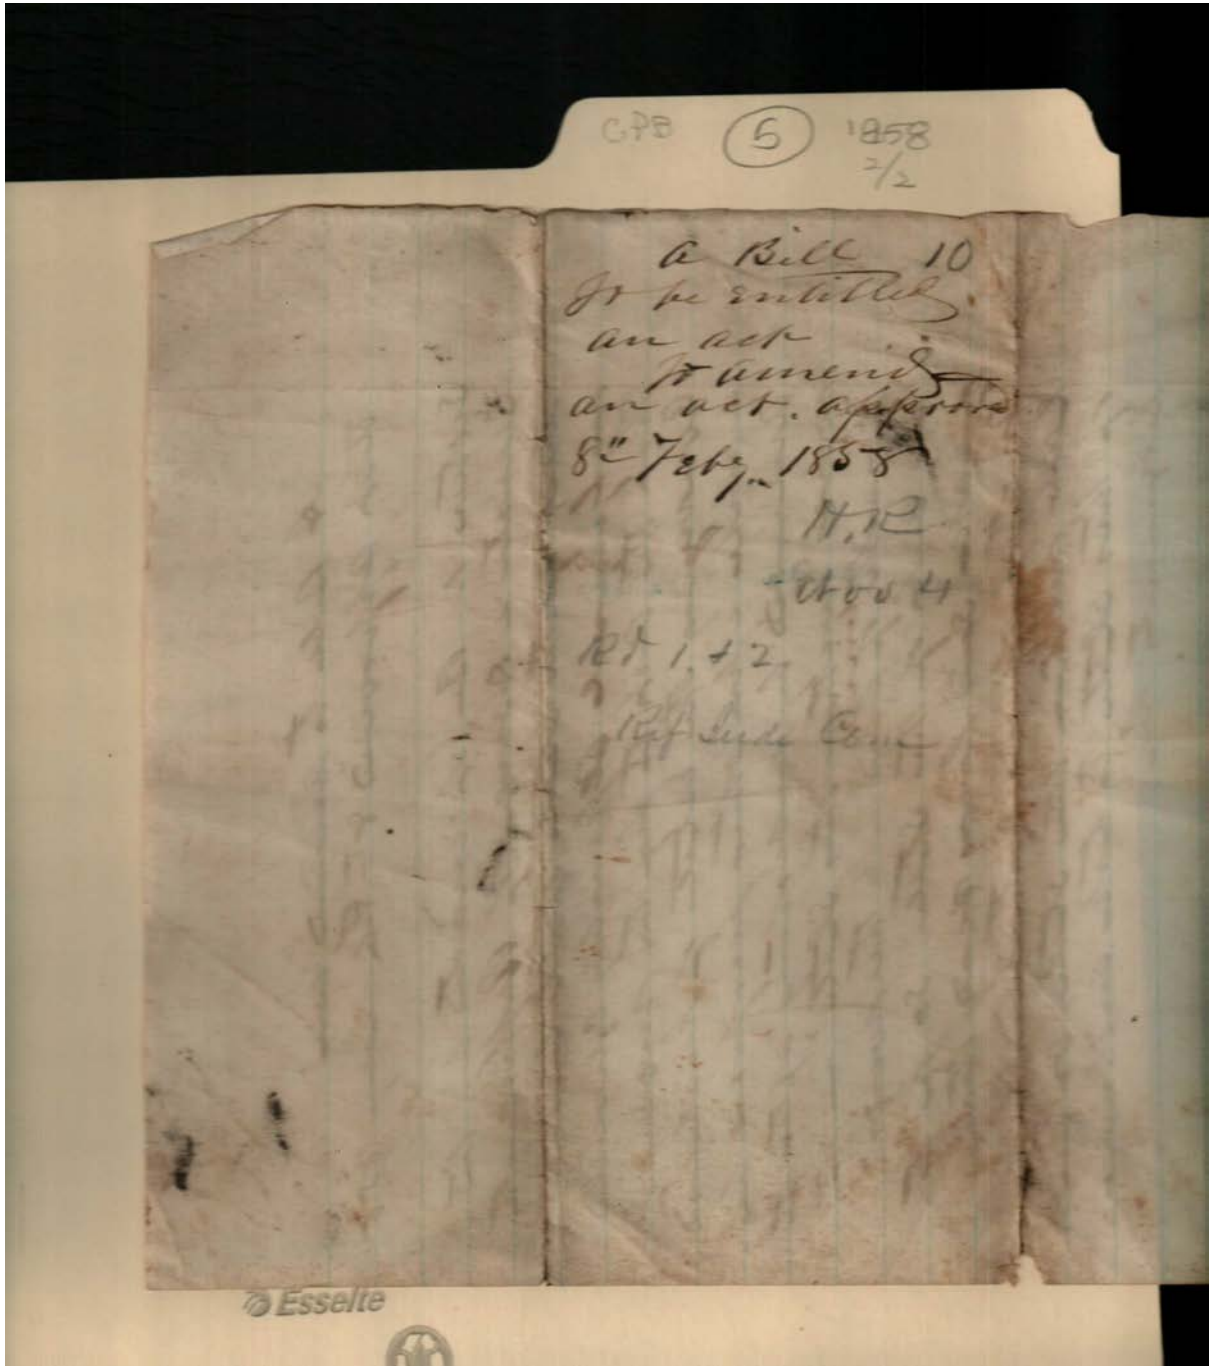 GPB 5 1858
2/2
A Bill 10
To be entitled
an act
to amend
an act. approved
8th Feby. 1858
H.R
Nov 4
Rd 1. & 2
Ref Com
Esselte